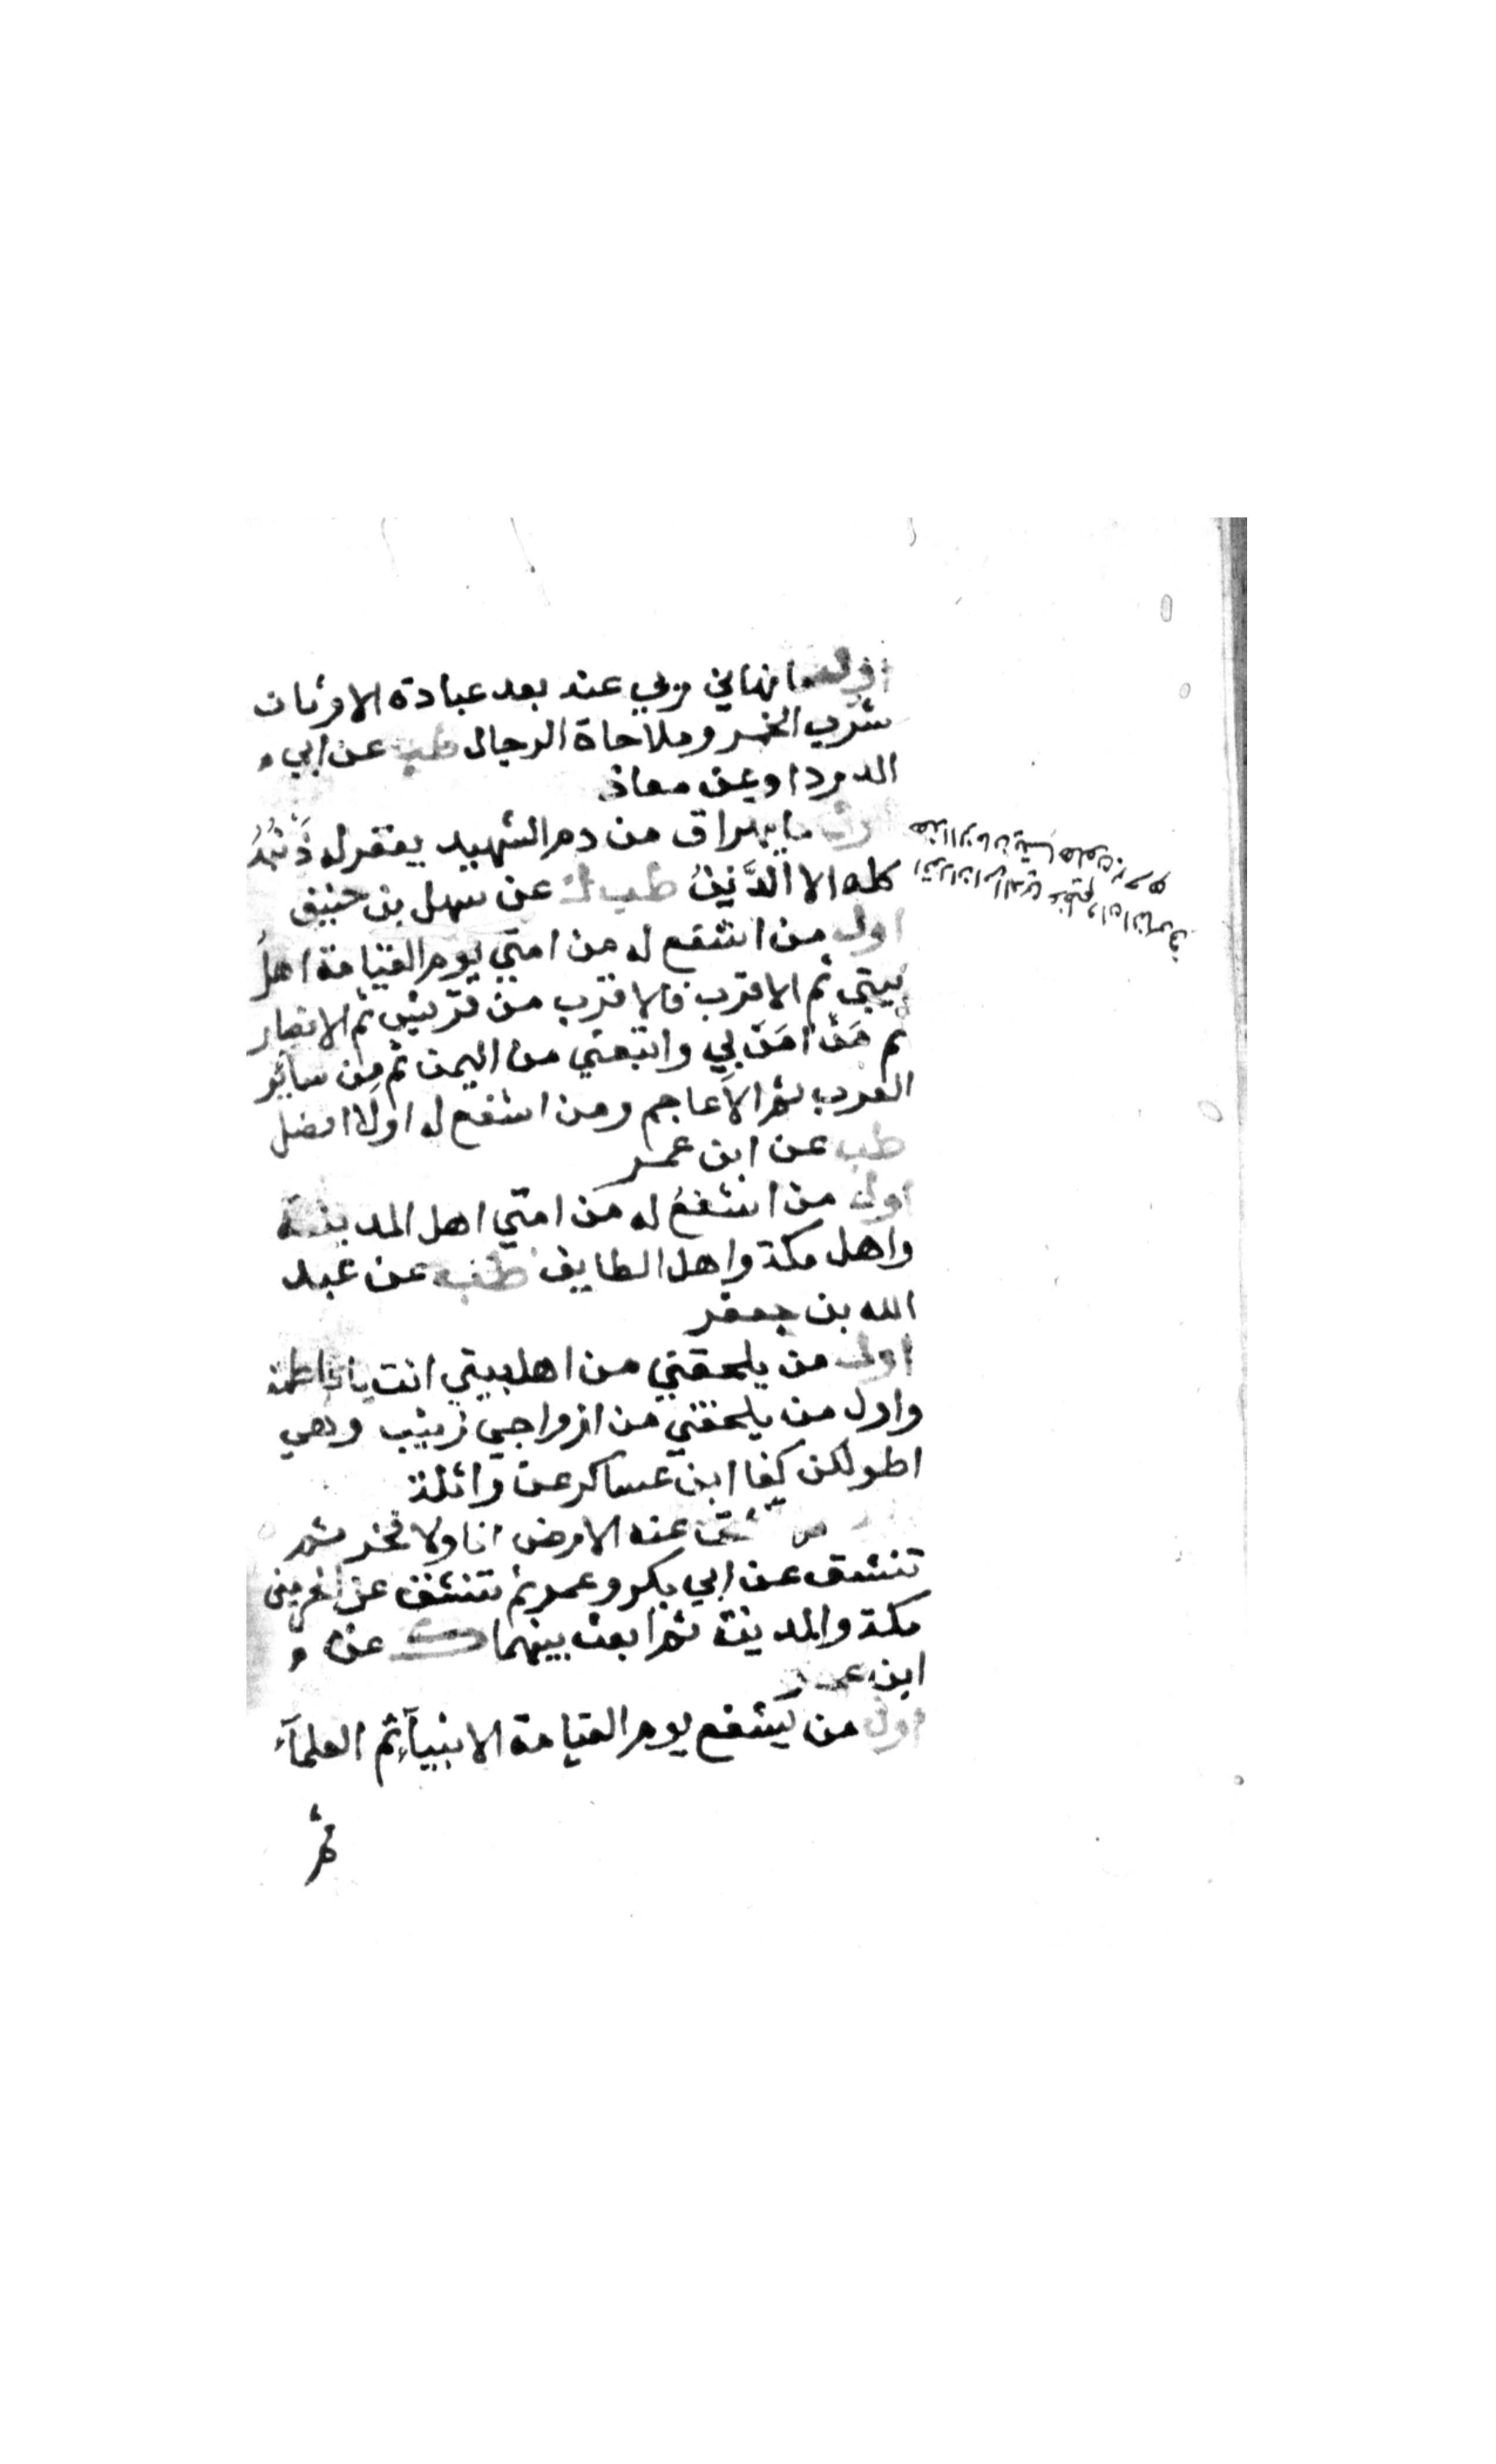 اول ما نهاني ربي عنه بعد عبادة الاوثان
شرب الخمر وملاحاة الرجال طب عن ابي
الدردا وعن معاذ
اول ما يهراق من دم الشهيد يغفر له ذَنْبُهُ
كله الا الدَّيْنُ طب ك عن سهل بن حنيف
اول من اشفع له من امتي يوم القيامة اهلُ
بيتي ثم الاقرب فالاقرب من قريش ثم الانصار
ثم مَنْ آمَنَ بي واتبعني من اليمن ثم من سائر
العرب ثم الاعاجم ومن اشفع له اولا افضل
طب عن ابن عمر
اول من اشفعُ له من امتي اهل المدينة
واهل مكة واهل الطايف طب عن عبد
الله بن جعفر
اول من يلحقني من اهل بيتي انت يا فاطمة
واول من يلحقني من ازواجي زينب وهي
اطولكن كفا ابن عساكر عن واثلة
من تنشق عنه الارض انا ولا فخر ثم
تنشق عن ابي بكر وعمر ثم تنشق عن الحرمين
مكة والمدينة ثم ابعث بينهما ك عن
ابن عمر
اول من يشفع يوم القيامة الانبيآء ثم العلمآء
ثم